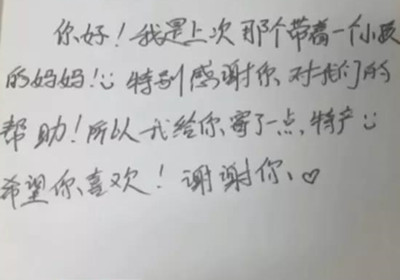 你好！我是上次那个带着一个小孩
的妈妈！☺特别感谢你、对我们的
帮助！所以我给你、寄了一点、特产☺
希望你、喜欢！谢谢你、♡